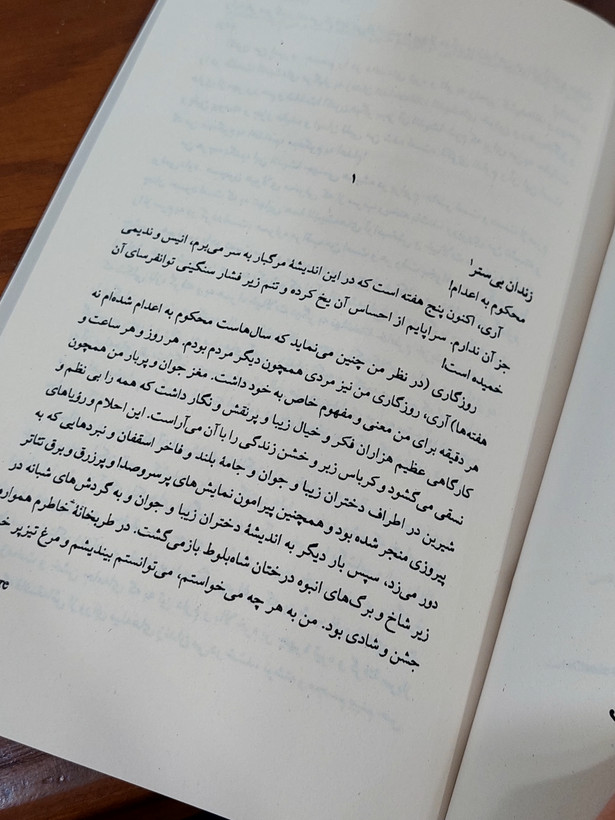 ۱
زندان بی‌ستر!
محکوم به اعدام!
آری، اکنون پنج هفته است که در این اندیشهٔ مرگبار به سر می‌برم، انیس و ندیمی
جز آن ندارم. سراپایم از احساس آن یخ کرده و تنم زیر فشار سنگینی توانفرسای آن
خمیده است!
روزگاری (در نظر من چنین می‌نماید که سال‌هاست محکوم به اعدام شده‌ام نه
هفته‌ها) آری، روزگاری من نیز مردی همچون دیگر مردم بودم. هر روز و هر ساعت و
هر دقیقه برای من معنی و مفهوم خاص به خود داشت. مغز جوان و پربار من همچون
کارگاهی عظیم هزاران فکر و خیال زیبا و پرنقش و نگار داشت که همه را بی نظم و
نسقی می‌گشود و کرباس زبر و خشن زندگی را با آن می‌آراست. این احلام و رؤیاهای
شیرین در اطراف دختران زیبا و جوان و جامهٔ بلند و فاخر اسقفان و نبردهایی که به
پیروزی منجر شده بود و همچنین پیرامون نمایش‌های پرسروصدا و پرزرق و برق تئاتر
دور می‌زد، سپس بار دیگر به اندیشهٔ دختران زیبا و جوان و به گردش‌های شبانه در
زیر شاخ و برگ‌های انبوه درختان شاه‌بلوط بازمی‌گشت. در طربخانهٔ خاطرم همواره
جشن و شادی بود. من به هر چه می‌خواستم، می‌توانستم بیندیشم و مرغ تیزپر